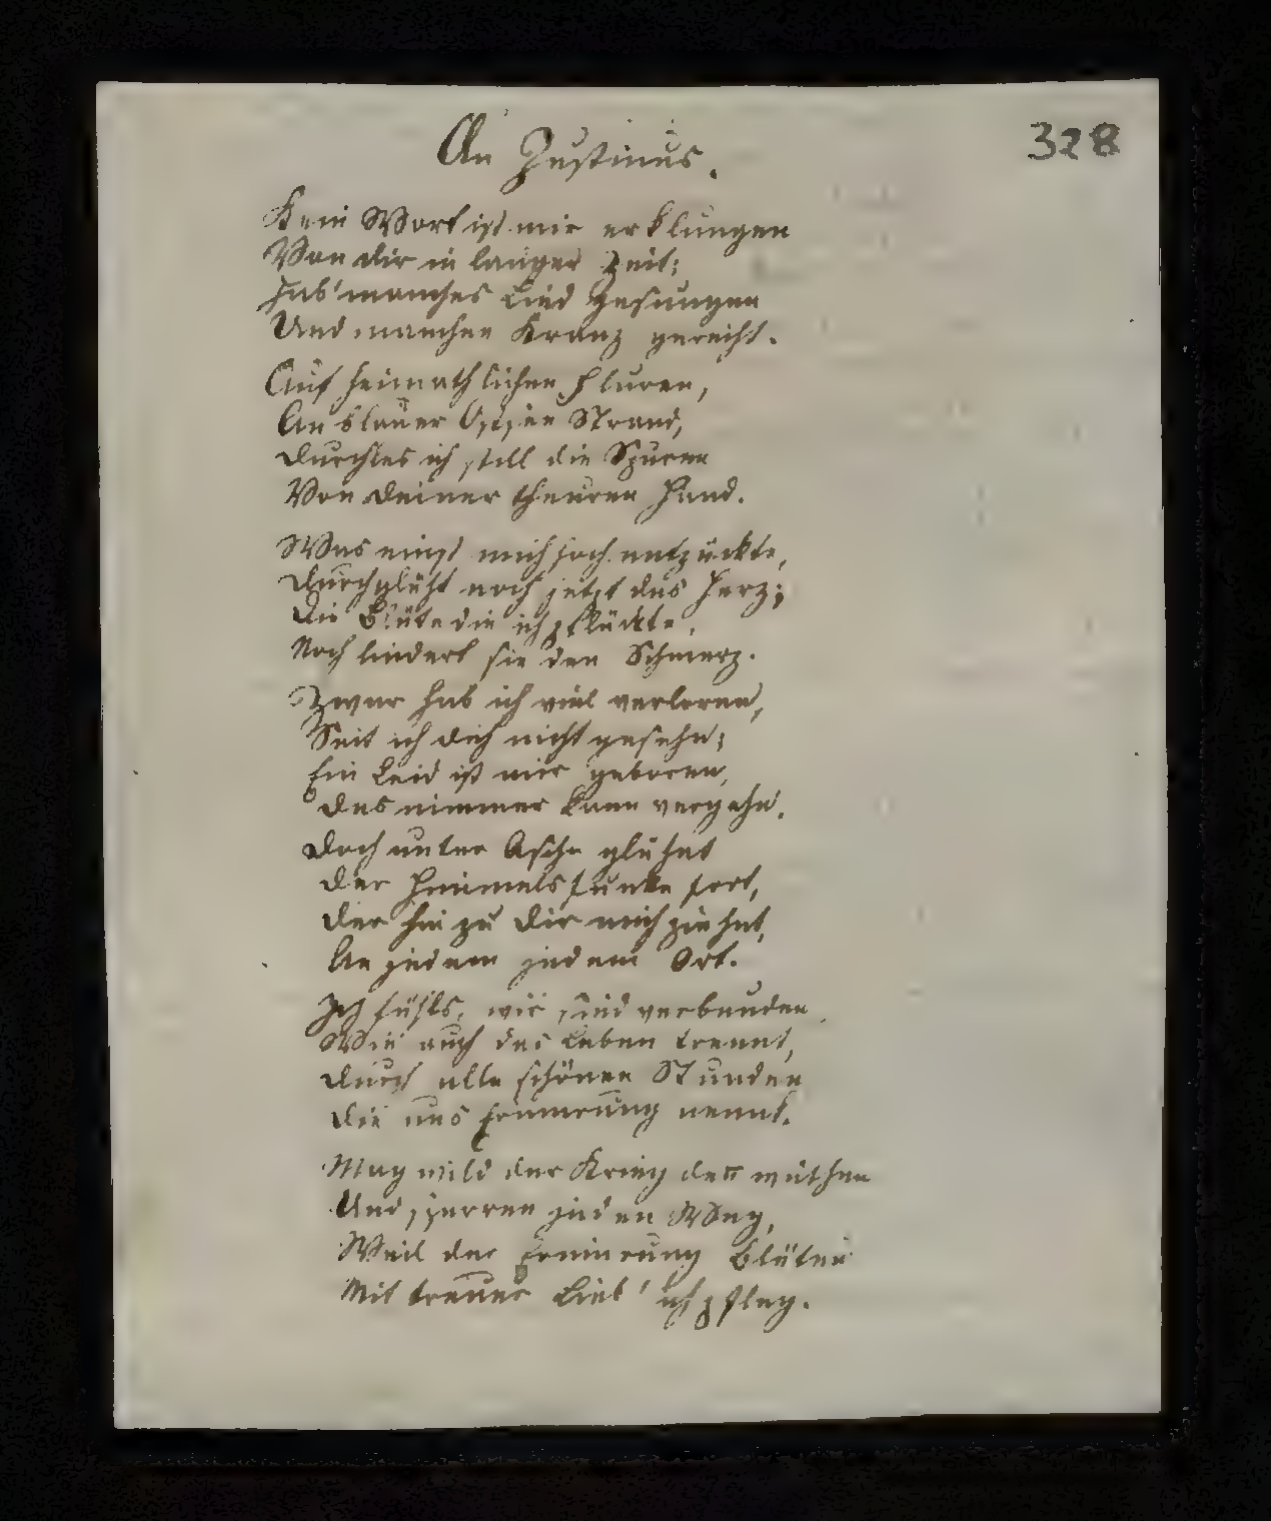 An Justinus.
328
Kein Wort ist mir erklungen
Von dir in langer Zeit;
Hab' manches Lied gesungen
Und manchen Kranz gereiht.
Auf heimathlichen Fluren,
An blauer Ostsee Strand,
Durchlas ich still die Spuren
Von deiner theuren Hand.
Was einst mich hoch entzückte,
Durchglüht noch jetzt das Herz;
Die Blüte die ich pflückte,
Noch lindert sie den Schmerz.
Zwar hab ich viel verloren,
Seit ich dich nicht gesehn;
Ein Leid ist mir geboren,
Das nimmer kann vergehn.
Doch unter Asche glühet
Der Himmelsfunke fort,
Der hin zu dir mich ziehet,
An jedem jedem Ort.
Ich fühls, wir sind verbunden
Wie auch das Leben trennt,
Durch alle schönen Stunden
Die uns Erinnerung nennt.
Mag wild der Krieg den wüthen
Und sperren jeden Weg,
Weil der Erinnrung Blüten
Mit treuer Lieb' ich pfleg.